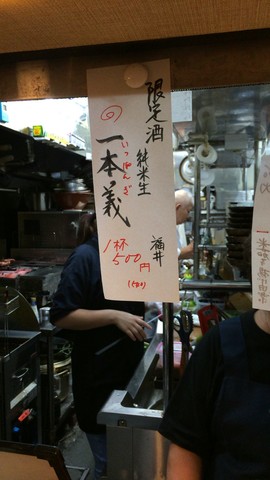 限定酒
純米生
福井
一本義
いっぽんぎ
1杯
500円